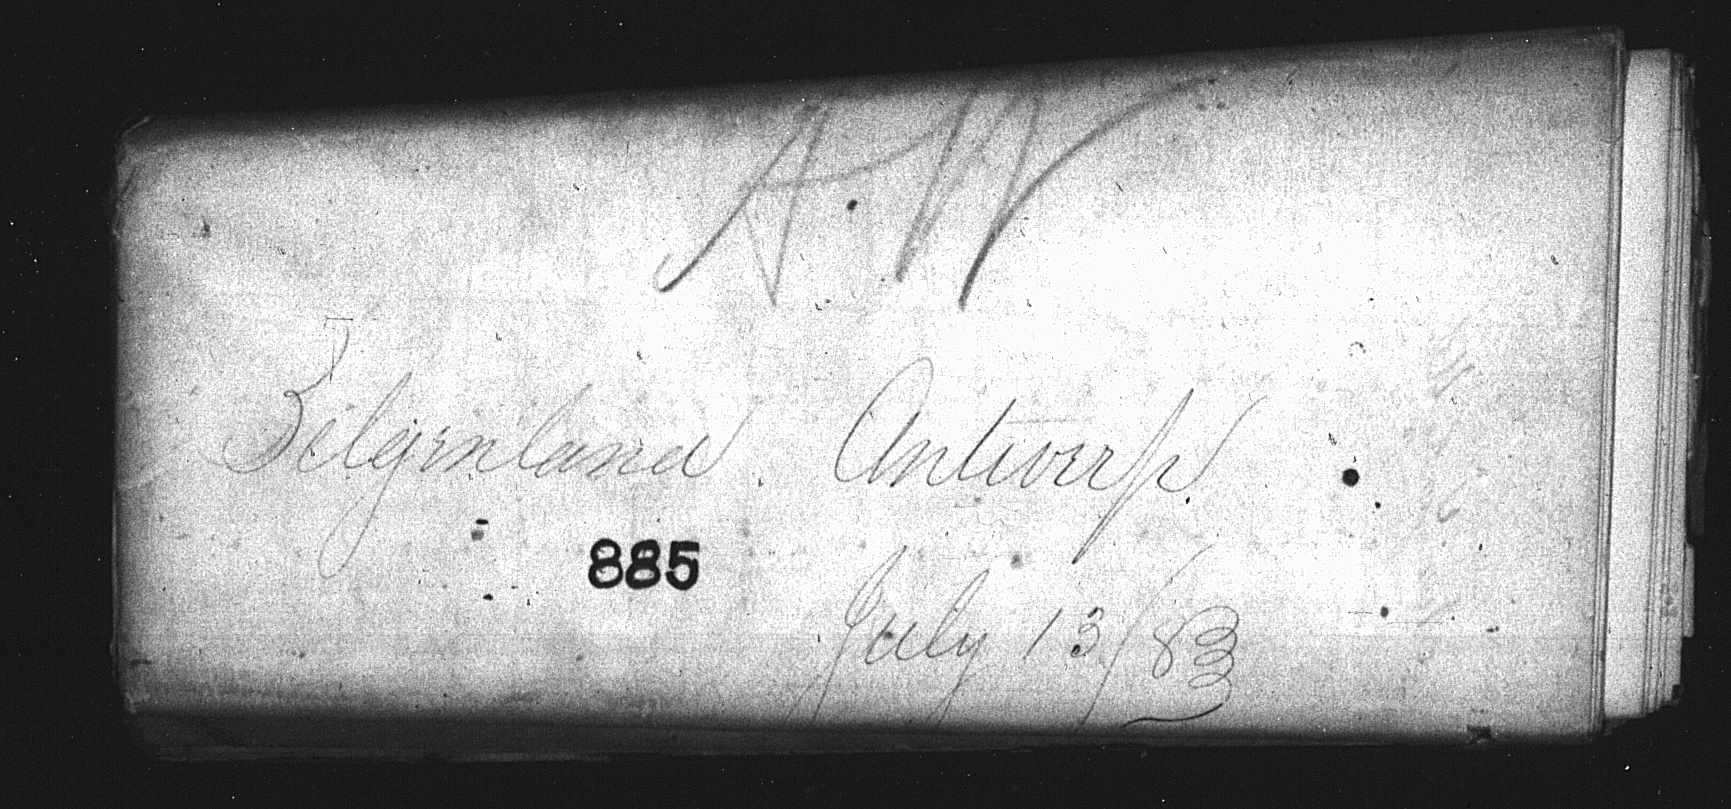 A. W
Belgenland. Antwerp.
885
July 13/83